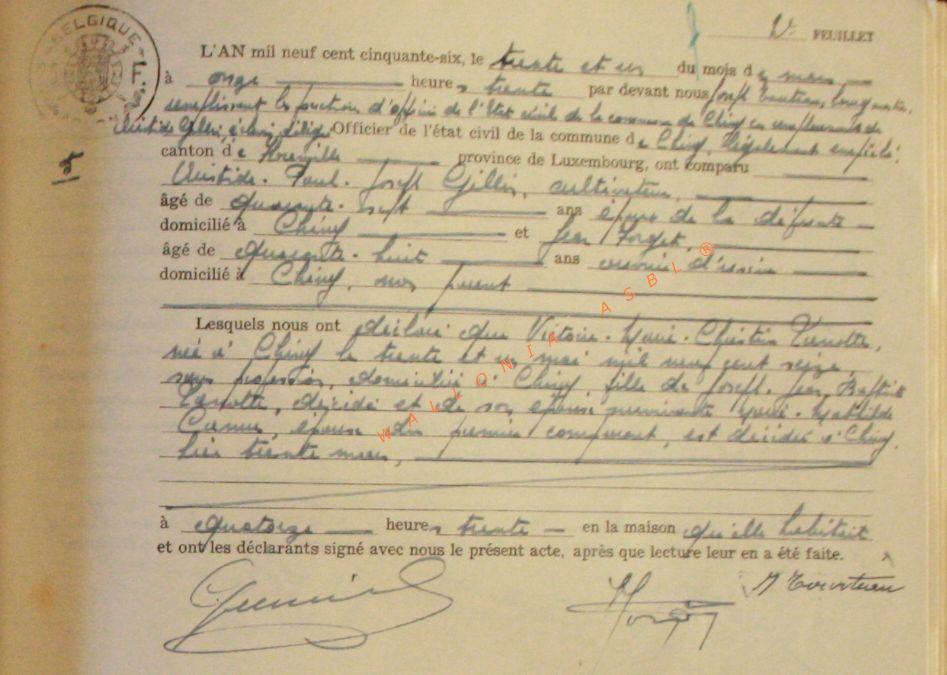 BELGIQUE
F.
2e FEUILLET
L'AN mil neuf cent cinquante-six, le trente et un du mois de mars
à onze heures trente par devant nous Joseph bourgmestre,
remplissant les fonctions d'officier de l'Etat civil de la commune de Chiny en remplacement de
Aristide Gillin Officier de l'état civil de la commune de Chiny, légalement empêché.
5
canton de Florenville province de Luxembourg, ont comparu
Aristide. Paul. Joseph Gillin, cultivateur,
âgé de quarante-sept ans époux de la défunte
domicilié à Chiny et Jean Forget,
âgé de quarante-huit ans ouvrier d'usine
domicilié à Chiny, non parent
Lesquels nous ont déclaré que Victoire. Marie. Christine
née à Chiny le trente et un mai mil neuf cent seize,
sans profession, domiciliée à Chiny, fille de Joseph. Jean, Baptiste
décédé et de son épouse survivante Marie. Mathilde
épouse du premier comparant, est décédée à Chiny,
hier trente mars,
à quatorze heures trente en la maison qu'elle habitait
et ont les déclarants signé avec nous le présent acte, après que lecture leur en a été faite.
WALLONIA ASBL ®